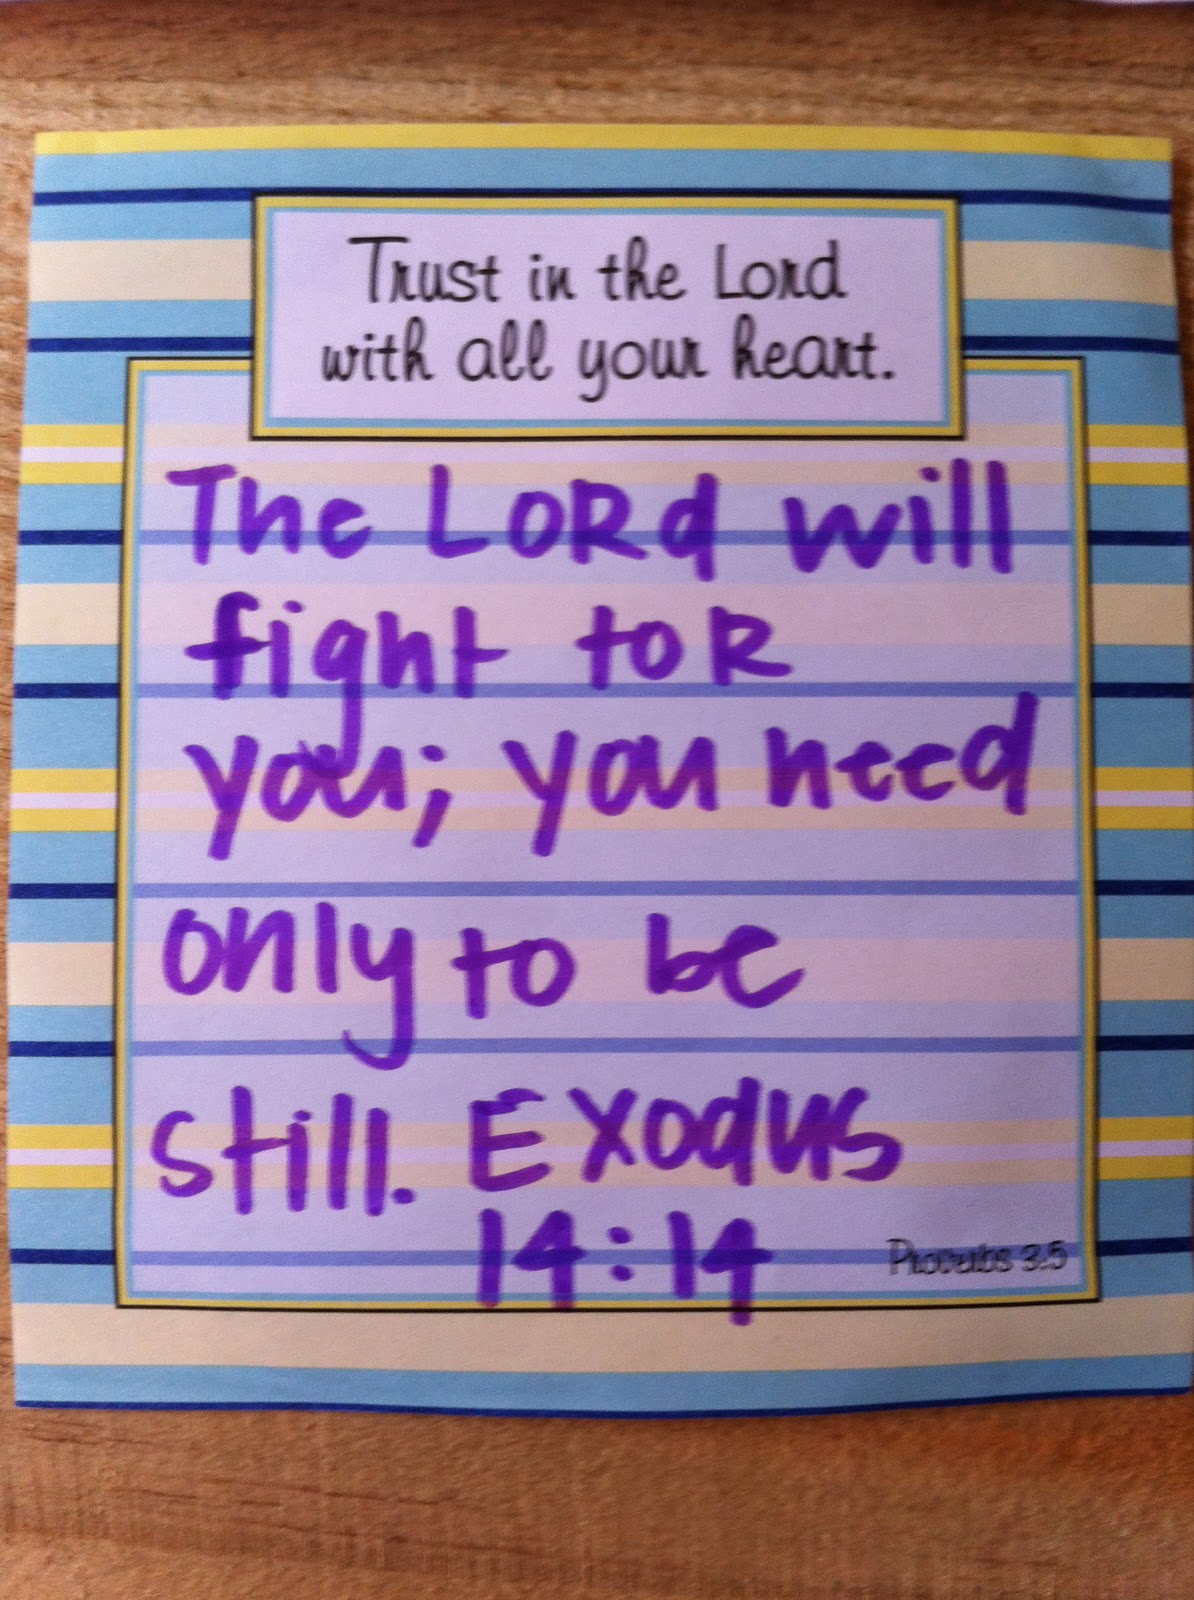 Trust in the Lord
with all your heart.
The LORd will
fight foR
you; you need
only to be
still. Exodus
14:14
Proverbs 3:5